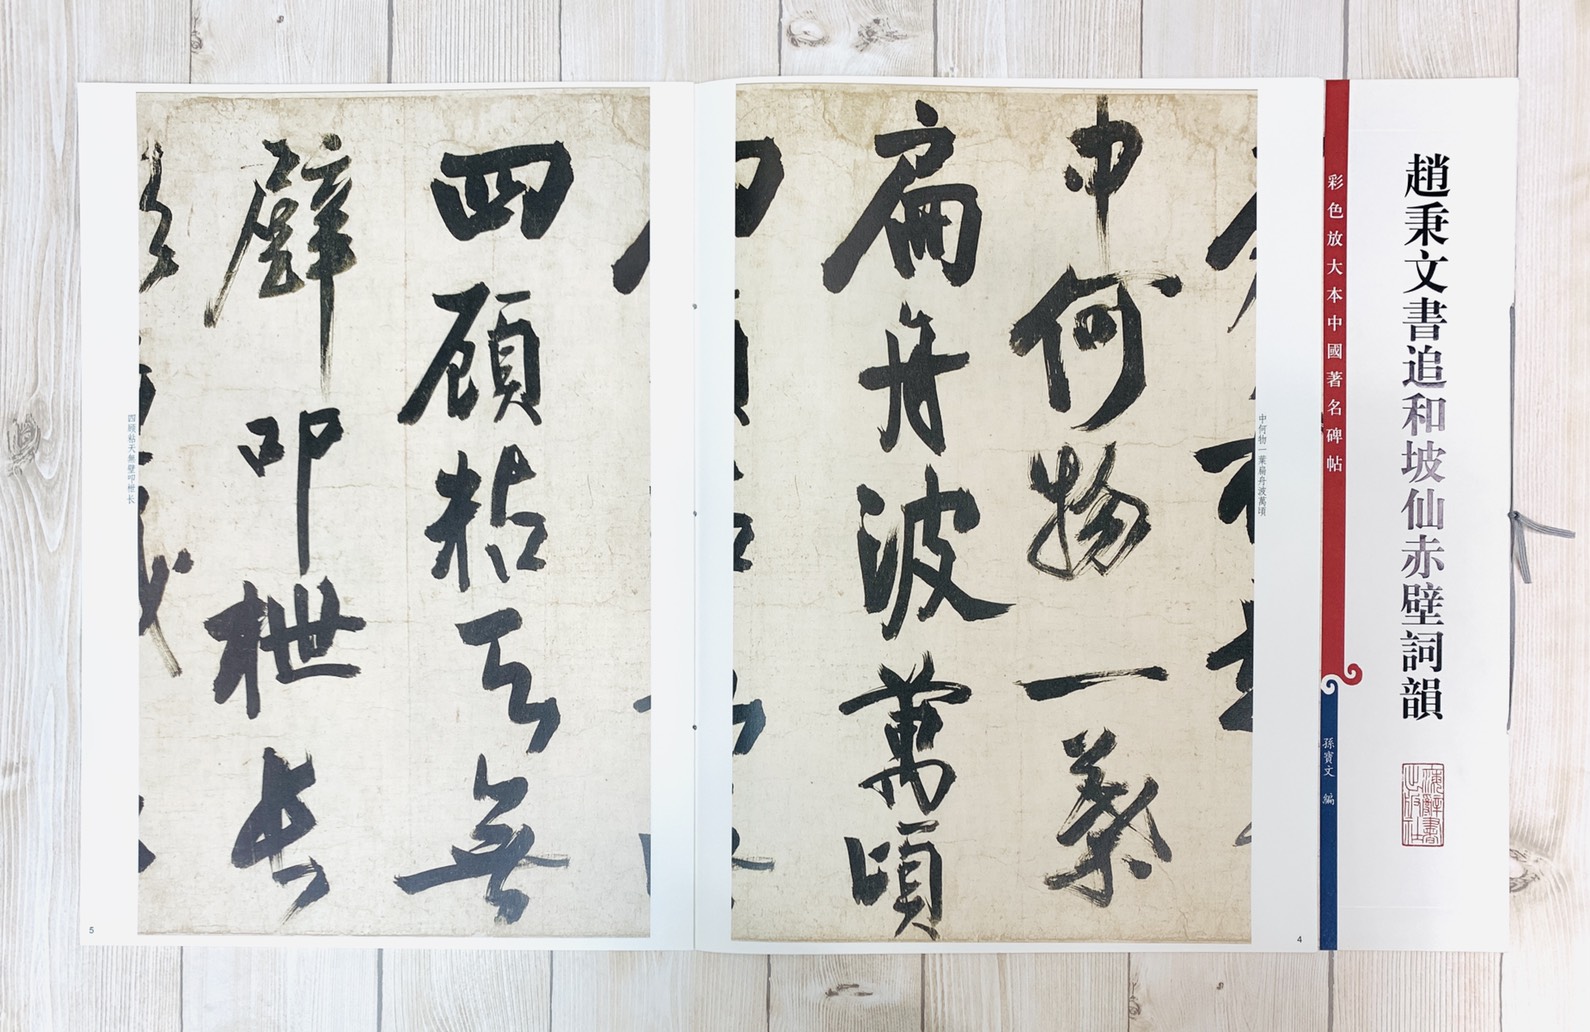 趙秉文書追和坡仙赤壁詞韻
彩色放大本中國著名碑帖
孫寶文 編
海辭書出版社
中何物一葉扁舟波萬頃
中何物一葉
扁舟波萬頃
4
四顧粘天無
壁叩枻长
四顧粘天無壁叩枻长
5